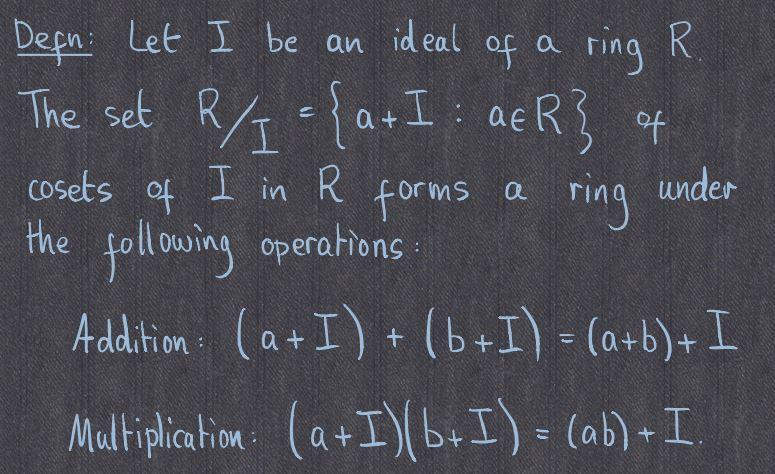 Defn: Let I be an ideal of a ring R.
The set R/I = { a + I : a ∈ R } of
cosets of I in R forms a ring under
the following operations:
Addition: (a + I) + (b + I) = (a+b) + I
Multiplication: (a + I)(b + I) = (ab) + I.